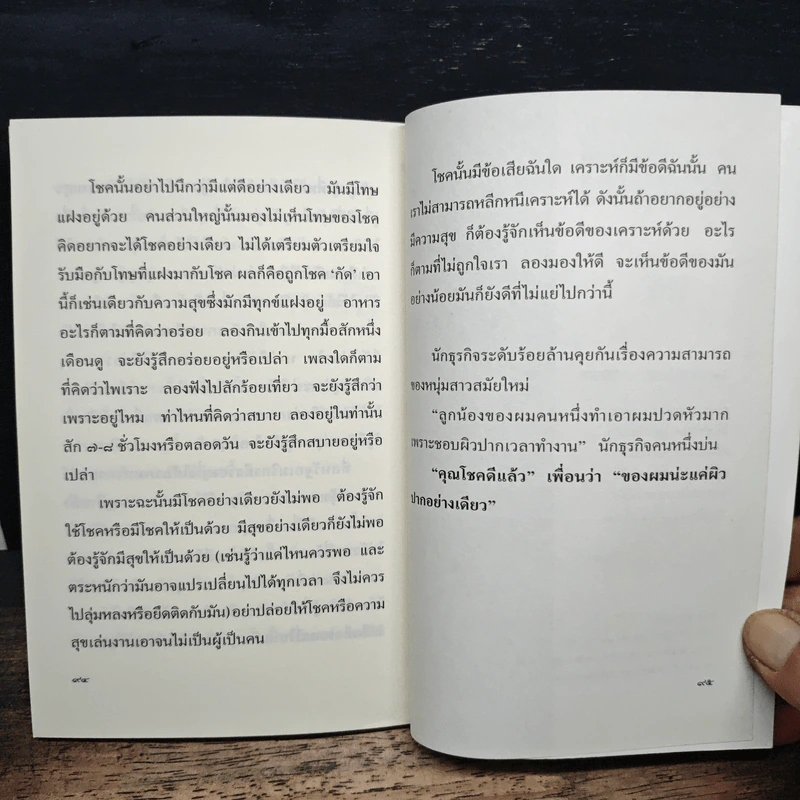 โชคนั้นอย่าไปนึกว่ามีแต่ดีอย่างเดียว มันมีโทษ
แฝงอยู่ด้วย คนส่วนใหญ่นั้นมองไม่เห็นโทษของโชค
คิดอยากจะได้โชคอย่างเดียว ไม่ได้เตรียมตัวเตรียมใจ
รับมือกับโทษที่แฝงมากับโชค ผลก็คือถูกโชค ‘กัด’ เอา
นี้ก็เช่นเดียวกับความสุขซึ่งมักมีทุกข์แฝงอยู่ อาหาร
อะไรก็ตามที่คิดว่าอร่อย ลองกินเข้าไปทุกมื้อสักหนึ่ง
เดือนดู จะยังรู้สึกอร่อยอยู่หรือเปล่า เพลงใดก็ตาม
ที่คิดว่าไพเราะ ลองฟังไปสักร้อยเที่ยว จะยังรู้สึกว่า
เพราะอยู่ไหม ท่าไหนที่คิดว่าสบาย ลองอยู่ในท่านั้น
สัก ๗-๘ ชั่วโมงหรือตลอดวัน จะยังรู้สึกสบายอยู่หรือ
เปล่า
เพราะฉะนั้นมีโชคอย่างเดียวยังไม่พอ ต้องรู้จัก
ใช้โชคหรือมีโชคให้เป็นด้วย มีสุขอย่างเดียวก็ยังไม่พอ
ต้องรู้จักมีสุขให้เป็นด้วย (เช่นรู้ว่าแค่ไหนควรพอ และ
ตระหนักว่ามันอาจแปรเปลี่ยนไปได้ทุกเวลา จึงไม่ควร
ไปลุ่มหลงหรือยึดติดกับมัน) อย่าปล่อยให้โชคหรือความ
สุขเล่นงานเอาจนไม่เป็นผู้เป็นคน
๑๙๔
โชคนั้นมีข้อเสียฉันใด เคราะห์ก็มีข้อดีฉันนั้น คน
เราไม่สามารถหลีกหนีเคราะห์ได้ ดังนั้นถ้าอยากอยู่อย่าง
มีความสุข ก็ต้องรู้จักเห็นข้อดีของเคราะห์ด้วย อะไร
ก็ตามที่ไม่ถูกใจเรา ลองมองให้ดี จะเห็นข้อดีของมัน
อย่างน้อยมันก็ยังดีที่ไม่แย่ไปกว่านี้
นักธุรกิจระดับร้อยล้านคุยกันเรื่องความสามารถ
ของหนุ่มสาวสมัยใหม่
“ลูกน้องของผมคนหนึ่งทำเอาผมปวดหัวมาก
เพราะชอบผิวปากเวลาทำงาน” นักธุรกิจคนหนึ่งบ่น
“คุณโชคดีแล้ว” เพื่อนว่า “ของผมน่ะแค่ผิว
ปากอย่างเดียว”
๑๙๕